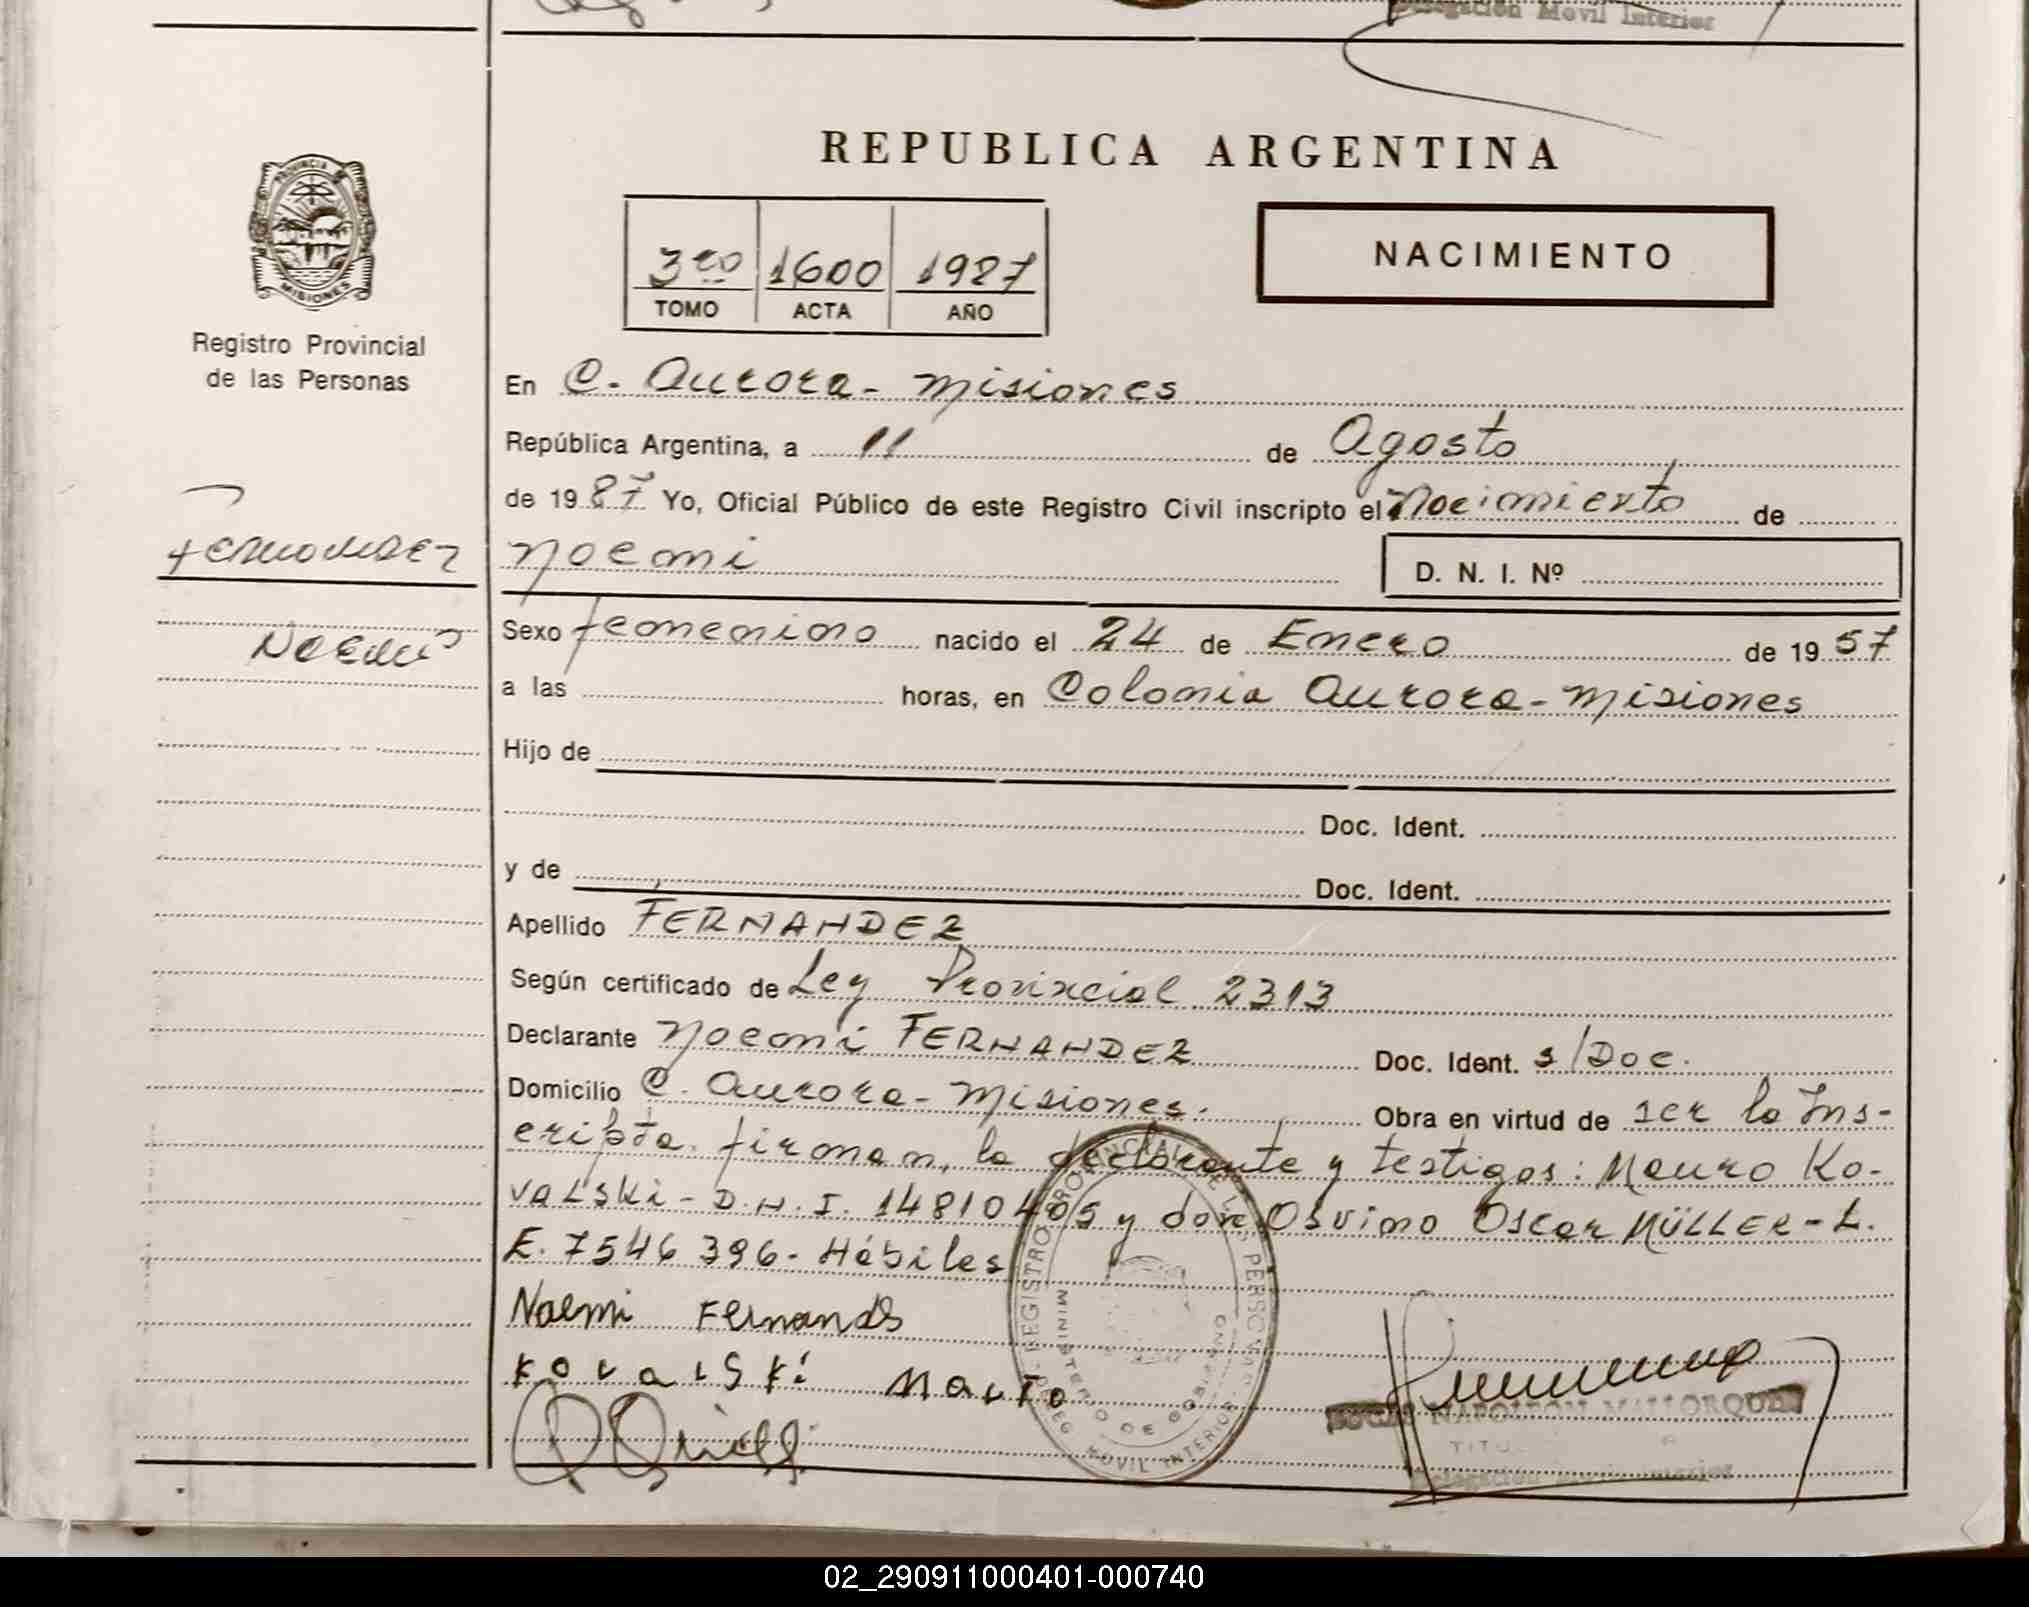 Delegación Movil Interior
REPUBLICA ARGENTINA
PROVINCIA DE MISIONES
3ro 1600 1987
TOMO ACTA AÑO
NACIMIENTO
Registro Provincial
de las Personas
En C. Aurora - Misiones
República Argentina, a 11 de Agosto
de 1987 Yo, Oficial Público de este Registro Civil inscripto el Nacimiento de
Fernandez
Noemi
Noemi
D. N. I. Nº
Sexo femenino nacido el 24 de Enero de 1957
a las horas, en Colonia Aurora - Misiones
Hijo de
Doc. Ident.
y de Doc. Ident.
Apellido FERNANDEZ
Según certificado de Ley Provincial 2313
Declarante Noemi FERNANDEZ Doc. Ident. s/Doc.
Domicilio C. Aurora - Misiones. Obra en virtud de ser la Ins-
cripta. firman, la declarante y testigos: Mauro Ko-
valski - D.N.I. 14810405 y don Osvino Oscar MÜLLER - L.
E. 7546396 - Hábiles
Noemi Fernands
Kovalski Mauro
REGISTRO PROVINCIAL DE LAS PERSONAS
MINISTERIO DE GOBIERNO
DELEG. MOVIL INTERIOR
NAPOLEON MALLORQUIN
Delegación Movil Interior
02_290911000401-000740